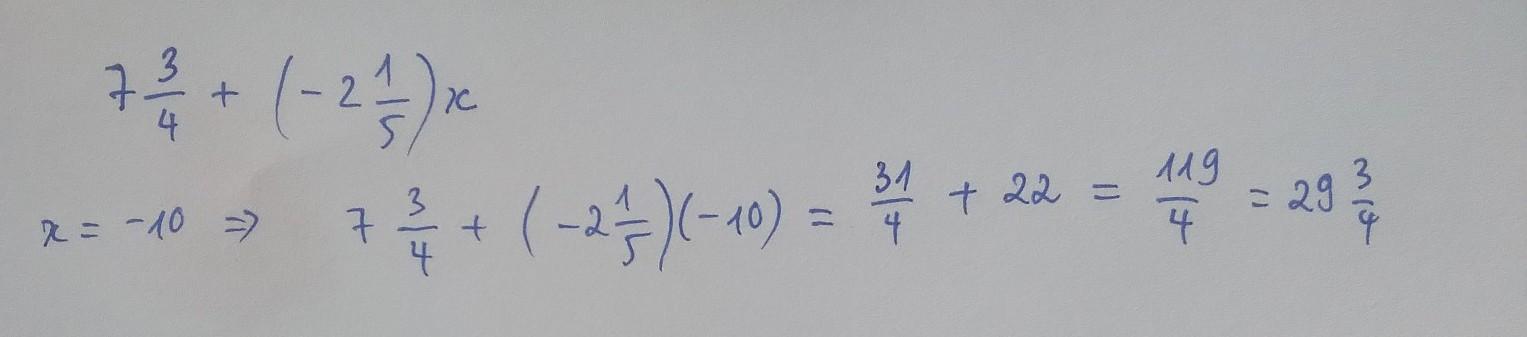 7 3/4 + (-2 1/5)x
x = -10 ⇒ 7 3/4 + (-2 1/5)(-10) = 31/4 + 22 = 119/4 = 29 3/4